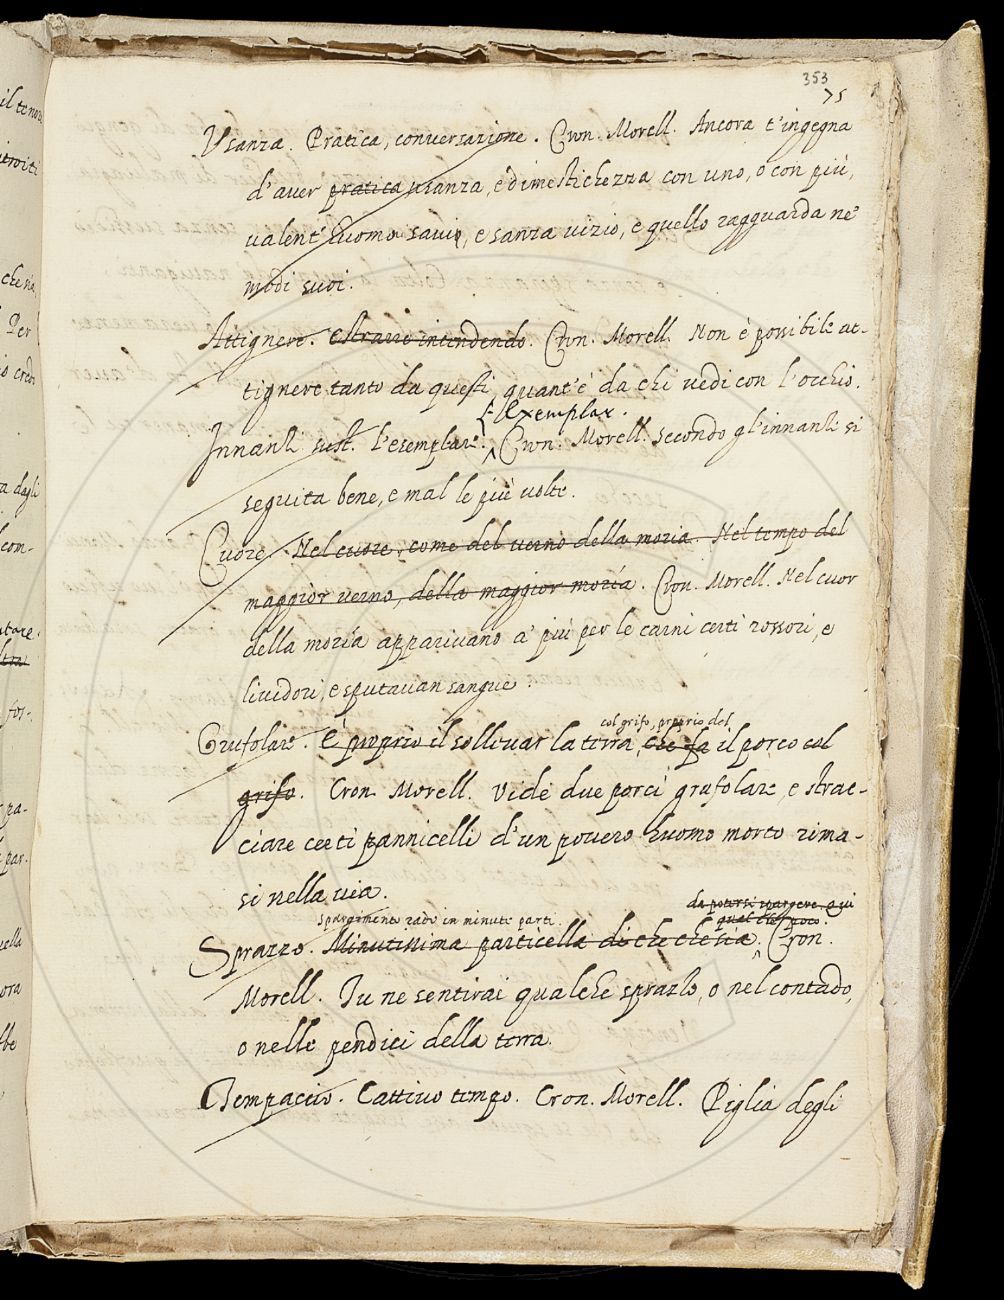 353
75
Usanza. Pratica, conversazione. Cron. Morell. Ancora t'ingegna
d'aver pratica usanza, e dimestichezza con uno, o con più,
valent'huomo savio, e sanza vizio, e quello ragguarda ne'
modi suoi.
Attignere. estrarre intendendo. Cron. Morell. Non è possibile at-
tignere tanto da questi, quant'è da chi vedi con l'occhio.
Exemplar.
Innanzi sust. l'esemplare. Cron. Morell. secondo gl'innanzi si
seguita bene, e mal le più volte.
Cuore. Nel cuore, come del verno della moria. Nel tempo del
maggior verno, della maggior moría. Cron. Morell. Nel cuor
della moría apparivano a' più per le carni certi rossori, e
lividori, e sputavan sangue.
col grifo, proprio del
Grufolare. È proprio il sollevar la terra, che fa il porco col
grifo. Cron. Morell. Vide due porci grufolare, e strac-
ciare certi pannicelli d'un povero huomo morto rima-
si nella via.
da potersi spargere ogni
spargimento rado in minute parti. qual che poco.
Sprazzo. Minutissima particella di che che sia. Cron.
Morell. Tu ne sentirai qualche sprazzo, o nel contado,
o nelle pendici della terra.
Tempaccio. Cattivo tempo. Cron. Morell. Piglia degli